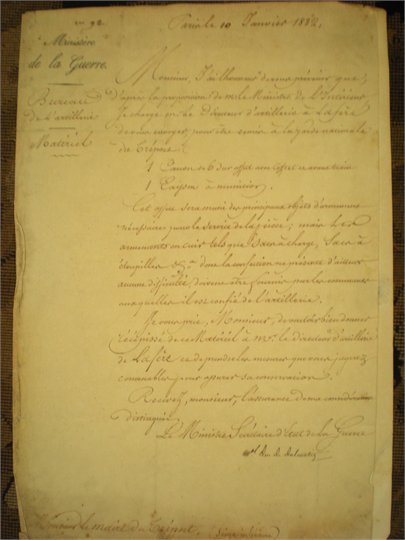 Paris le 10 Janvier 1832.
Ministère
de la Guerre.
Bureau
de l'artillerie
Matériel
Monsieur, J'ai l'honneur de vous prévenir que,
d'après la proposition de mr le Ministre de l'Intérieur,
je charge mr le Directeur d'artillerie à La fère
de vous envoyer, pour être remis à la garde nationale
de Crépy
1 Canon de 6 sur affut avec coffret et avant train
1 Caisson à munitions.
Cet affut sera muni des principaux objets d'armemens
nécessaires pour le service de la pièce; mais les
armemens en cuir tels que Sacs à charge, Sacs à
étoupilles &a dont la confection ne présente d'ailleurs
aucune difficulté, doivent être fournis par les communes
auxquelles il est confié de l'artillerie.
Je vous prie, Monsieur, de vouloir bien donner
récépissé de ce Matériel à Mr. le directeur d'artillerie
de La fère et de prendre les mesures que vous jugerez
convenables pour assurer sa conservation.
Recevez, monsieur, l'assurance de ma considération
distinguée.
Le Ministre Secrétaire d'État de la Guerre
Mal Duc de Dalmatie
Monsieur le maire de